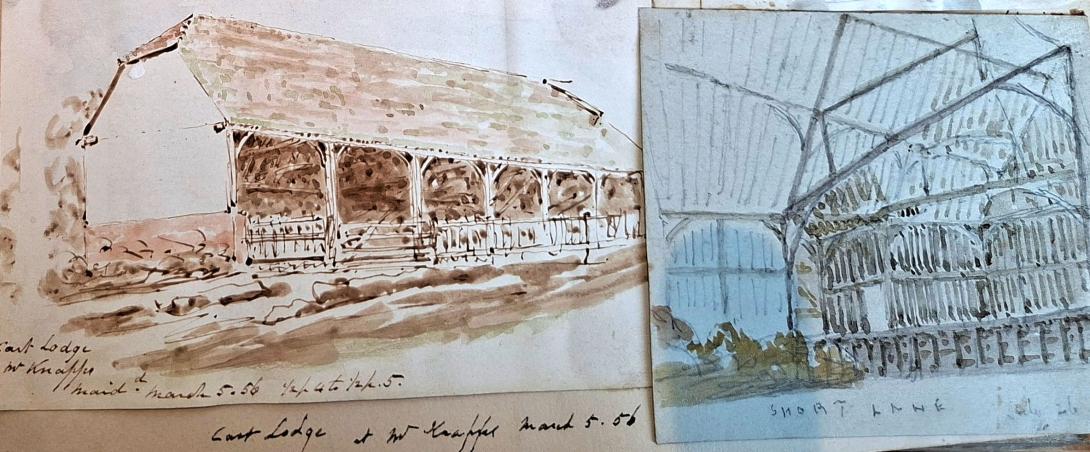 Cart Lodge
Mr Knapps
Maid.d March 5.56 ½p. 4 to ½p. 5.
Cart Lodge at Mr Knapps March 5.56
SHORT LANE